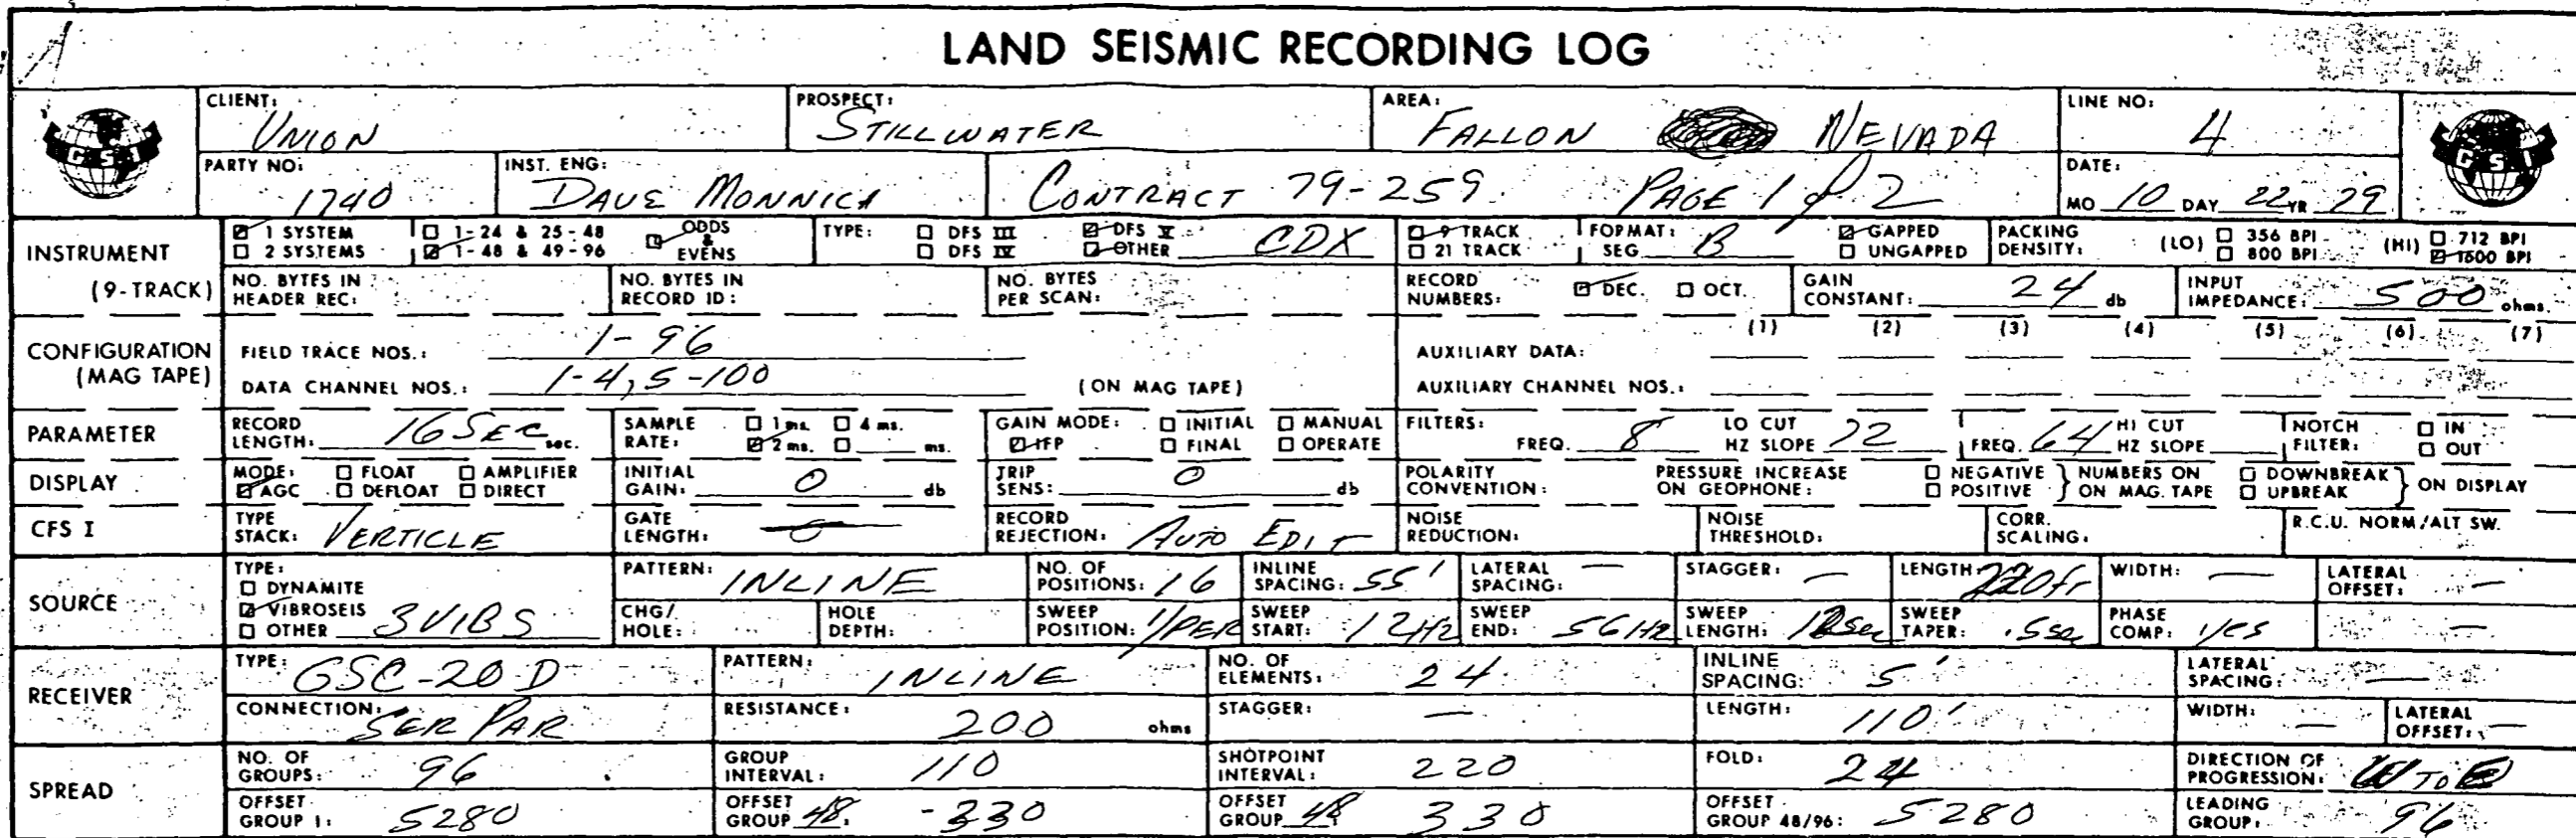 LAND SEISMIC RECORDING LOG
GSI
CLIENT: UNION
PROSPECT: STILLWATER
AREA: FALLON NEVADA
LINE NO: 4
GSI
PARTY NO: 1740
INST. ENG: DAVE MONNICH
CONTRACT 79-259. PAGE 1 of 2
DATE: MO 10 DAY 22 YR 29
INSTRUMENT (9-TRACK)
☑ 1 SYSTEM ☐ 1-24 & 25-48 ☑ ODDS & EVENS
☐ 2 SYSTEMS ☑ 1-48 & 49-96
TYPE: ☐ DFS III ☑ DFS V
☐ DFS IV ☑ OTHER CDX
☑ 9 TRACK FORMAT: SEG B ☑ GAPPED
☐ 21 TRACK ☐ UNGAPPED
PACKING DENSITY: (LO) ☐ 356 BPI ☐ 800 BPI (HI) ☐ 712 BPI ☑ 1600 BPI
NO. BYTES IN HEADER REC:
NO. BYTES IN RECORD ID:
NO. BYTES PER SCAN:
RECORD NUMBERS: ☑ DEC. ☐ OCT.
GAIN CONSTANT: 24 db
INPUT IMPEDANCE: 500 ohms.
CONFIGURATION (MAG TAPE)
FIELD TRACE NOS.: 1-96
DATA CHANNEL NOS.: 1-4, 5-100 (ON MAG TAPE)
(1) (2) (3) (4) (5) (6) (7)
AUXILIARY DATA:
AUXILIARY CHANNEL NOS.:
PARAMETER
RECORD LENGTH: 16 SEC sec.
SAMPLE RATE: ☐ 1 ms. ☐ 4 ms. ☑ 2 ms. ☐ ms.
GAIN MODE: ☐ INITIAL ☐ MANUAL ☑ IFP ☐ FINAL ☐ OPERATE
FILTERS: FREQ. 8 LO CUT HZ SLOPE 22 FREQ. 64 HI CUT HZ SLOPE
NOTCH FILTER: ☐ IN ☐ OUT
DISPLAY
MODE: ☐ FLOAT ☐ AMPLIFIER ☑ AGC ☐ DEFLOAT ☐ DIRECT
INITIAL GAIN: 0 db
TRIP SENS: 0 db
POLARITY CONVENTION: PRESSURE INCREASE ON GEOPHONE: ☐ NEGATIVE ☐ POSITIVE } NUMBERS ON MAG. TAPE ☐ DOWNBREAK ☐ UPBREAK } ON DISPLAY
CFS I
TYPE STACK: VERTICLE
GATE LENGTH: 0
RECORD REJECTION: AUTO EDIT
NOISE REDUCTION:
NOISE THRESHOLD:
CORR. SCALING:
R.C.U. NORM/ALT SW.
SOURCE
TYPE: ☐ DYNAMITE ☑ VIBROSEIS ☐ OTHER 3 VIBS
PATTERN: INLINE
NO. OF POSITIONS: 16
INLINE SPACING: 55'
LATERAL SPACING: —
STAGGER: —
LENGTH: 220 ft
WIDTH: —
LATERAL OFFSET: —
CHG/HOLE:
HOLE DEPTH:
SWEEP POSITION: 1/PER
SWEEP START: 12 Hz
SWEEP END: 56 Hz
SWEEP LENGTH: 12 sec
SWEEP TAPER: .5 sec
PHASE COMP: yes
—
RECEIVER
TYPE: GSC-20 D
PATTERN: INLINE
NO. OF ELEMENTS: 24
INLINE SPACING: 5'
LATERAL SPACING: —
CONNECTION: SER PAR
RESISTANCE: 200 ohms
STAGGER: —
LENGTH: 110'
WIDTH: —
LATERAL OFFSET: —
SPREAD
NO. OF GROUPS: 96
GROUP INTERVAL: 110
SHOTPOINT INTERVAL: 220
FOLD: 24
DIRECTION OF PROGRESSION: W TO E
OFFSET GROUP 1: 5280
OFFSET GROUP 48: -330
OFFSET GROUP 48 330
OFFSET GROUP 48/96: 5280
LEADING GROUP: 96